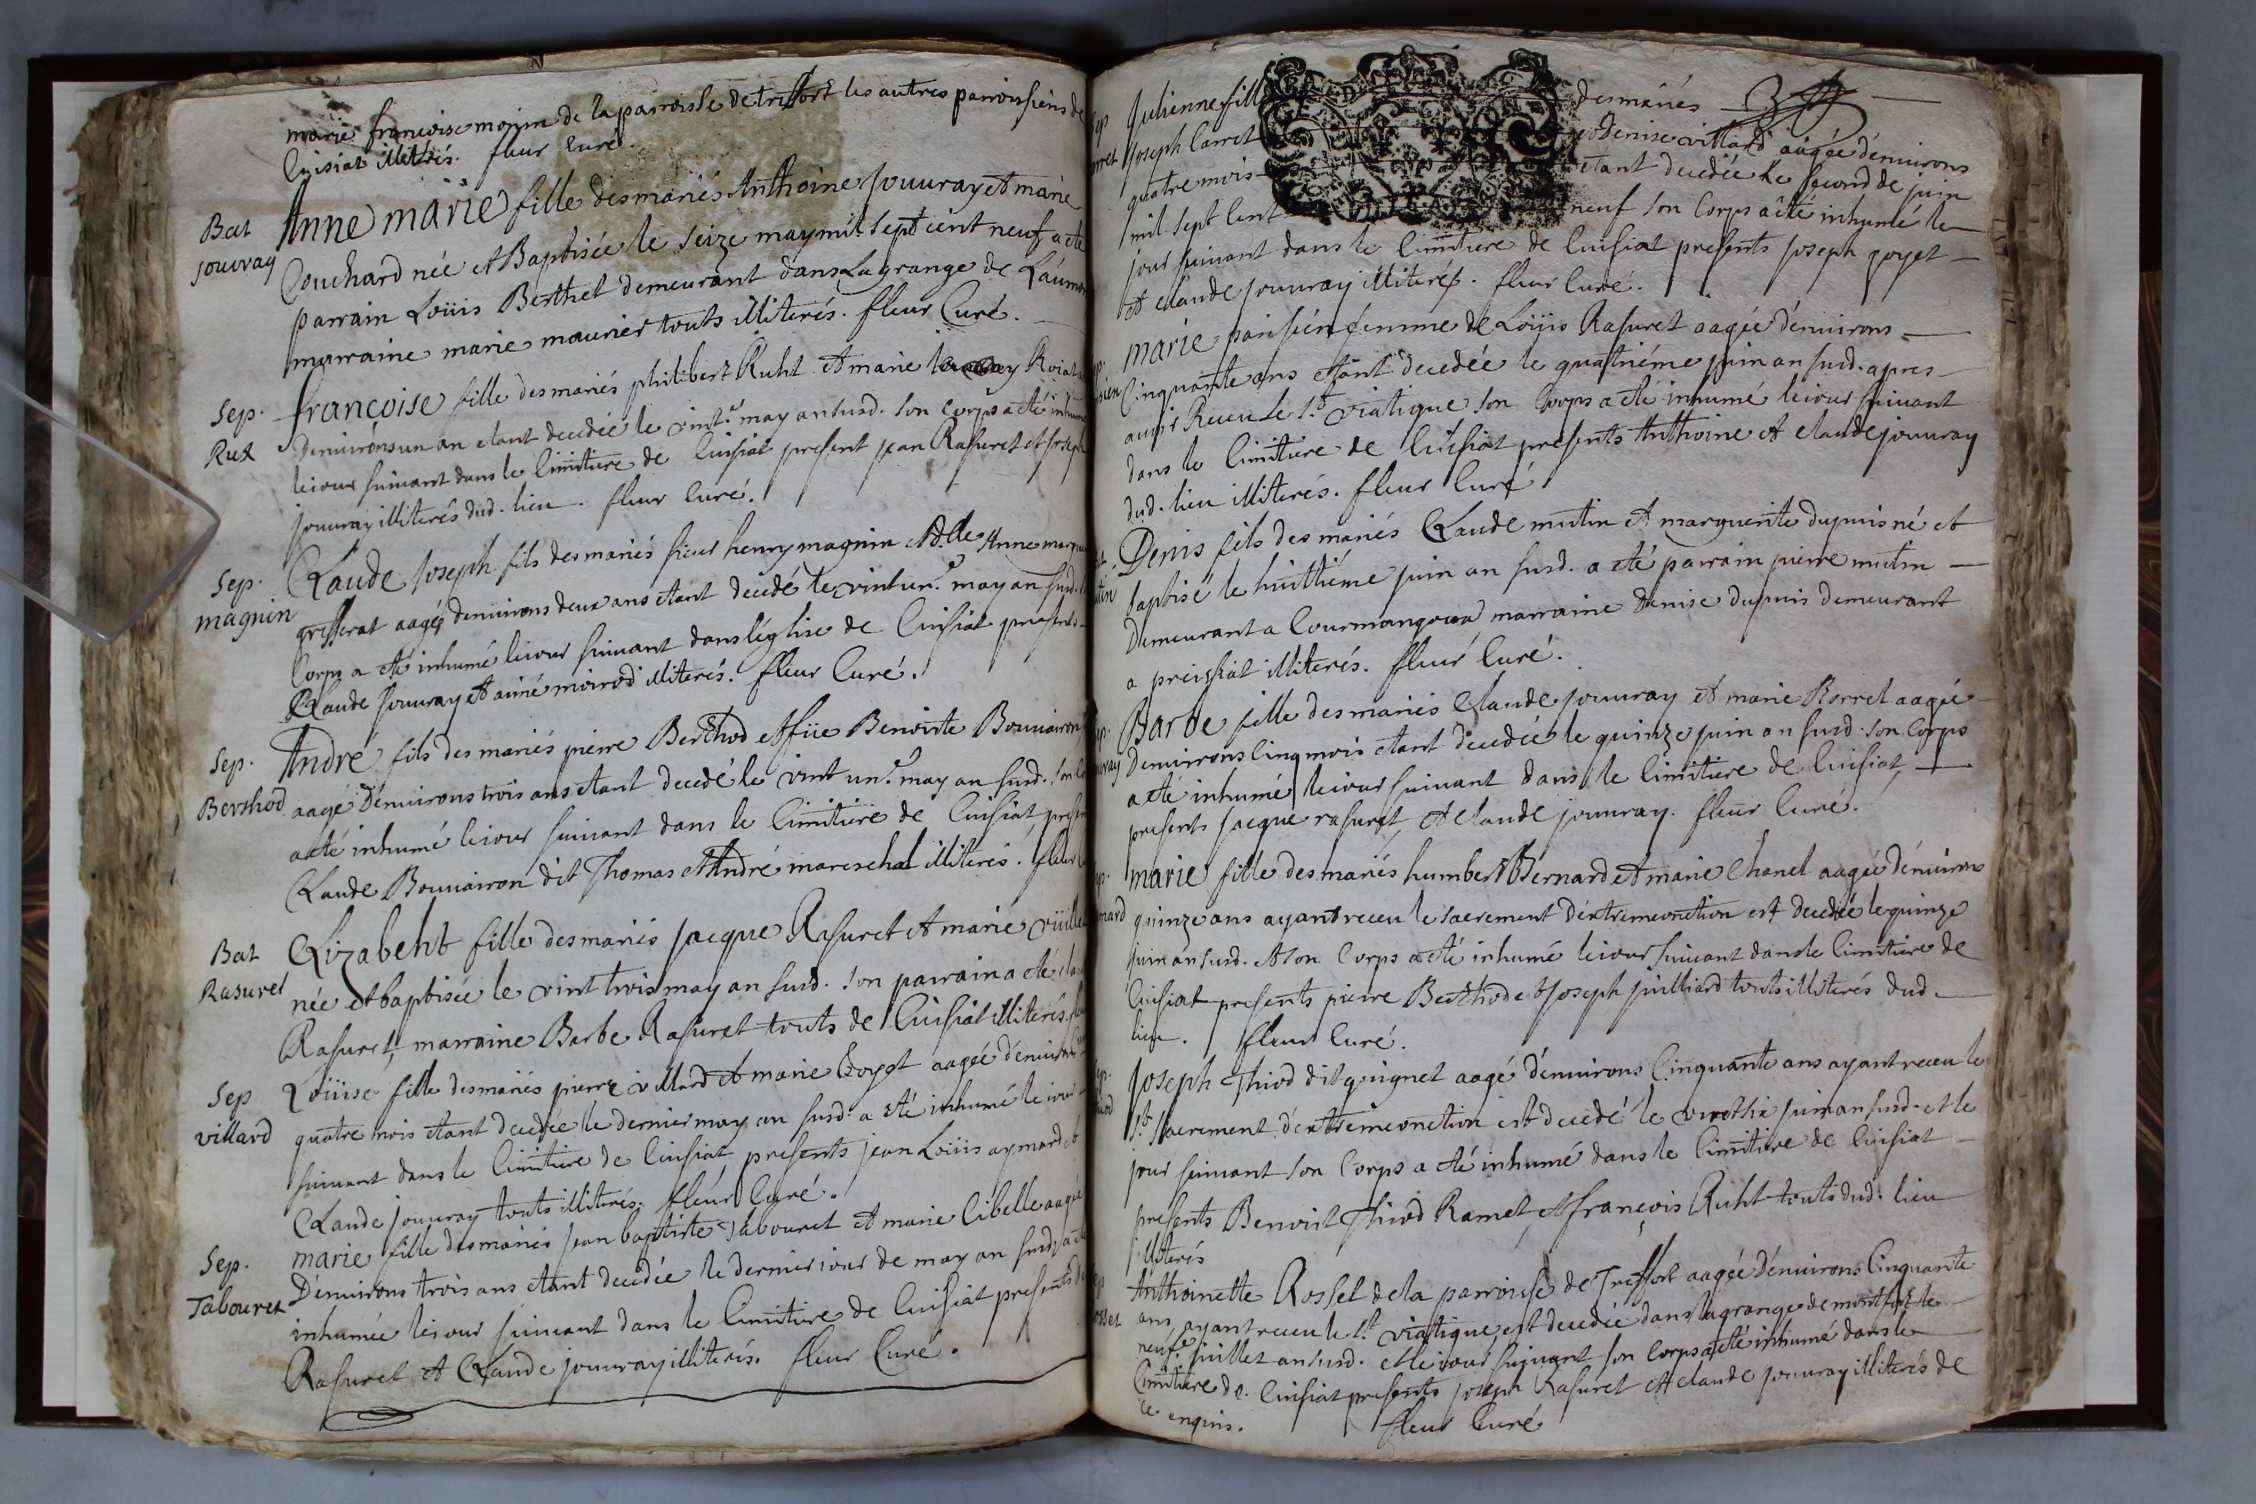 marie françoise monin de la parroisse de trefort les autres parroissiens de
Cuisiat illiterés. fleur Curé.
Bat
jouvray
Anne marie fille des mariés Anthoine jouuray et marie
Couchard née et Baptisée le seize may mil sept cent neuf a eté
parrain Loüis Berthet demeurant dans La grange de
marraine marie maurier touts illiterés. fleur Curé.
Sep.
Rux
françoise fille des mariés philibert Ruht et marie
d'enuirons un an etant decedée le vint.e may an susd. son Corps a eté
le iour suiuant dans le Cimitiere de Cuisiat present jean Rasuret et joseph
jouuray illiterés dud. lieu. fleur Curé.
Sep.
magnin
Claude joseph fils des mariés sieur henry magnin et d.lle Anne
grifferat aagé d'enuirons deux ans etant decedé le vint un.e may an susd.
Corps a eté inhumé le iour suiuant dans l'église de Cuisiat presents
Claude jouuray et aimé moirod illiterés. fleur Curé.
Sep.
Berthod
André fils des mariés pierre Berthod et füe Benoirte Bouuairon
aagé d'enuirons trois ans etant decedé le vint un.e may an susd. son
a eté inhumé le iour suiuant dans le Cimitiere de Cuisiat
Claude Bouuairon dit Thomas et André mareschal illiterés. fleur
Bat
Rasuret
Elizabeht fille des mariés jacque Rasuret et marie
née et baptisée le vint trois may an susd. son parrain a eté
Rasuret, marraine Barbe Rasuret touts de Cuisiat illiterés.
Sep
villard
Loüise fille des mariés pierre villard et marie Goyet aagée d'enuirons
quatre mois etant decedée le dernier may an susd. a eté inhumé le iour
suiuant dans le Cimitiere de Cuisiat presents jean Loüis aymard et
Claude jouuray touts illiterés. fleur Curé.
Sep.
Tabouret
marie fille des mariés jean baptiste Tabouret et marie Cibelle aagée
D'enuirons trois ans etant decedée le dernier iour de may an susd. a eté
inhumée le iour suiuant dans le Cimitiere de Cuisiat presents
Rasuret et Claude jouuray illiterés. fleur Curé.
julienne fille des mariés
joseph Carret et Denise villard aagée d'enuirons
quatre mois etant decedée le second de juin
mil sept cent neuf son Corps a eté inhumé le
jour suiuant dans le Cimitiere de Cuisiat presents joseph goyet
et claude jouuray illiterés. fleur Curé.
marie parisien femme de Loüis Rasuret aagée d'enuirons
Cinquante ans etant decedée le quatriéme juin an susd. apres
auoir Receu le s.t viatique son Corps a eté inhumé le iour suiuant
dans le Cimitiere de Cuisiat presents Anthoine et claude jouuray
dud. lieu illiterés. fleur Curé
Denis fils des mariés Claude mutin et marguerite dupuis né et
baptisé le huittiéme juin an susd. a eté parrain pierre mutin
Demeurant a Courmangoux marraine denise dupuis demeurant
a preissiat illiterés. fleur Curé.
Barbe fille des mariés Claude jouuray et marie Borret aagée
D'enuirons cinq mois etant decedée le quinze juin an susd. son Corps
a eté inhumé le iour suiuant dans le Cimitiere de Cuisiat,
presents jacque rasuret, et claude jouuray. fleur Curé.
marie fille des mariés humbert Bernard et marie Chanel aagée d'enuirons
quinze ans ayant receu le sacrement d'extremeonction est decedée le quinze
juin an susd. et son Corps a eté inhumé le iour suiuant dans le Cimitiere de
Cuisiat presents pierre Berthod et joseph juilliard touts illiterés dud.
lieu. fleur Curé.
joseph Thiod dit guignet aagé d'enuirons Cinquante ans ayant receu le
s.t sacrement d'extremeonction est decedé le vint six juin an susd. et le
jour suiuant son Corps a eté inhumé dans le Cimitiere de Cuisiat
presents Benoist Thiod Ramet, et françois Ruht touts dud. lieu
illiterés
Anthoinette Rosset de la parroisse de Treffort aagée d'enuirons Cinquante
ans ayant receu le s.t viatique est decedée dans la grange de montfort le
neufe juillet an susd. et le iour suiuant son Corps a eté inhumé dans le
Cimitiere de Cuisiat presents joseph Rasuret et claude jouuray illiterés de
ce enquis. fleur Curé